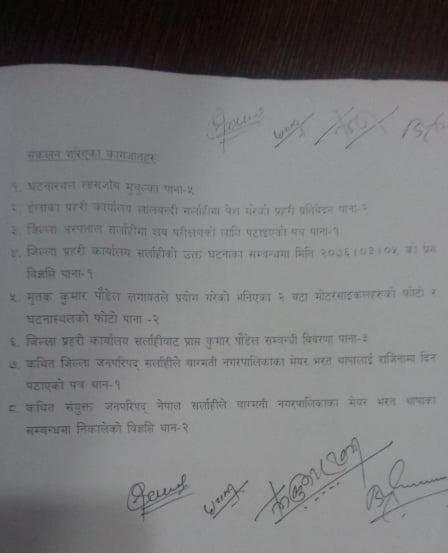 संकलन गरिएका कागजातहरु
१. घटनास्थल लासजाँच मुचुल्का पाना-५
२. ईलाका प्रहरी कार्यालय लालबन्दी सर्लाहीमा पेश गरेको प्रहरी प्रतिवेदन पाना-२
३. जिल्ला अस्पताल सर्लाहीमा शव परीक्षणको लागि पठाइएको पत्र पाना-१
४. जिल्ला प्रहरी कार्यालय सर्लाहीको उक्त घटनाका सम्बन्धमा मिति २०७६।०३।०५ को प्रेस
विज्ञप्ति पाना-१
५. मृतक कुमार पौडेल लगायतले प्रयोग गरेको भनिएका २ वटा मोटरसाइकलहरुको फोटो र
घटनास्थलको फोटो पाना -२
६. जिल्ला प्रहरी कार्यालय सर्लाहीबाट प्राप्त कुमार पौडेल सम्बन्धी विवरण पाना-३
७. कथित जिल्ला जनपरिषद् सर्लाहीले बागमती नगरपालिकाका मेयर भरत थापालाई राजिनामा दिन
पठाएको पत्र थान-१
८. कथित संयुक्त जनपरिषद् नेपाल सर्लाहीले बागमती नगरपालिकाका मेयर भरत थापाका
सम्बन्धमा निकालेको विज्ञप्ति थान-२